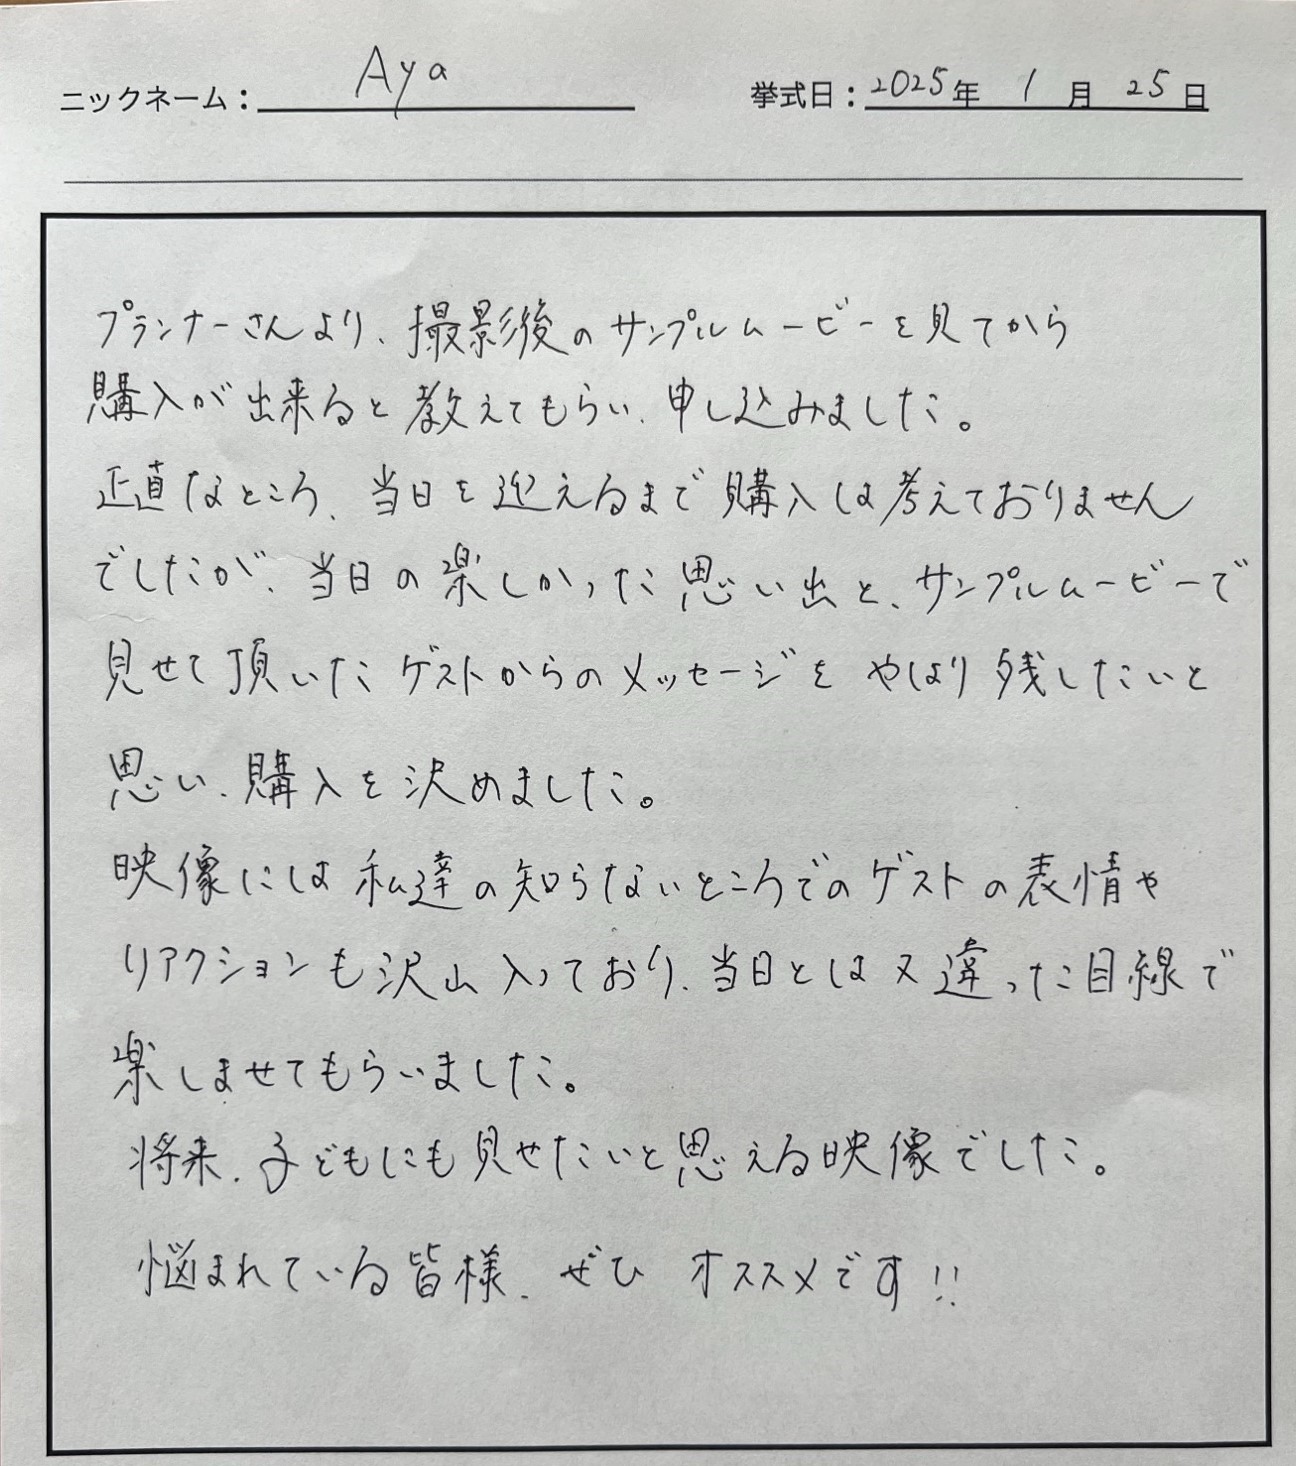 ニックネーム：Aya 挙式日：2025年 1月 25日
プランナーさんより、撮影後のサンプルムービーを見てから
購入が出来ると教えてもらい、申し込みました。
正直なところ、当日を迎えるまで購入は考えておりません
でしたが、当日の楽しかった思い出と、サンプルムービーで
見せて頂いたゲストからのメッセージをやはり残したいと
思い、購入を決めました。
映像には私達の知らないところでのゲストの表情や
リアクションも沢山入っており、当日とは又違った目線で
楽しませてもらいました。
将来、子どもにも見せたいと思える映像でした。
悩まれている皆様、ぜひ オススメです!!